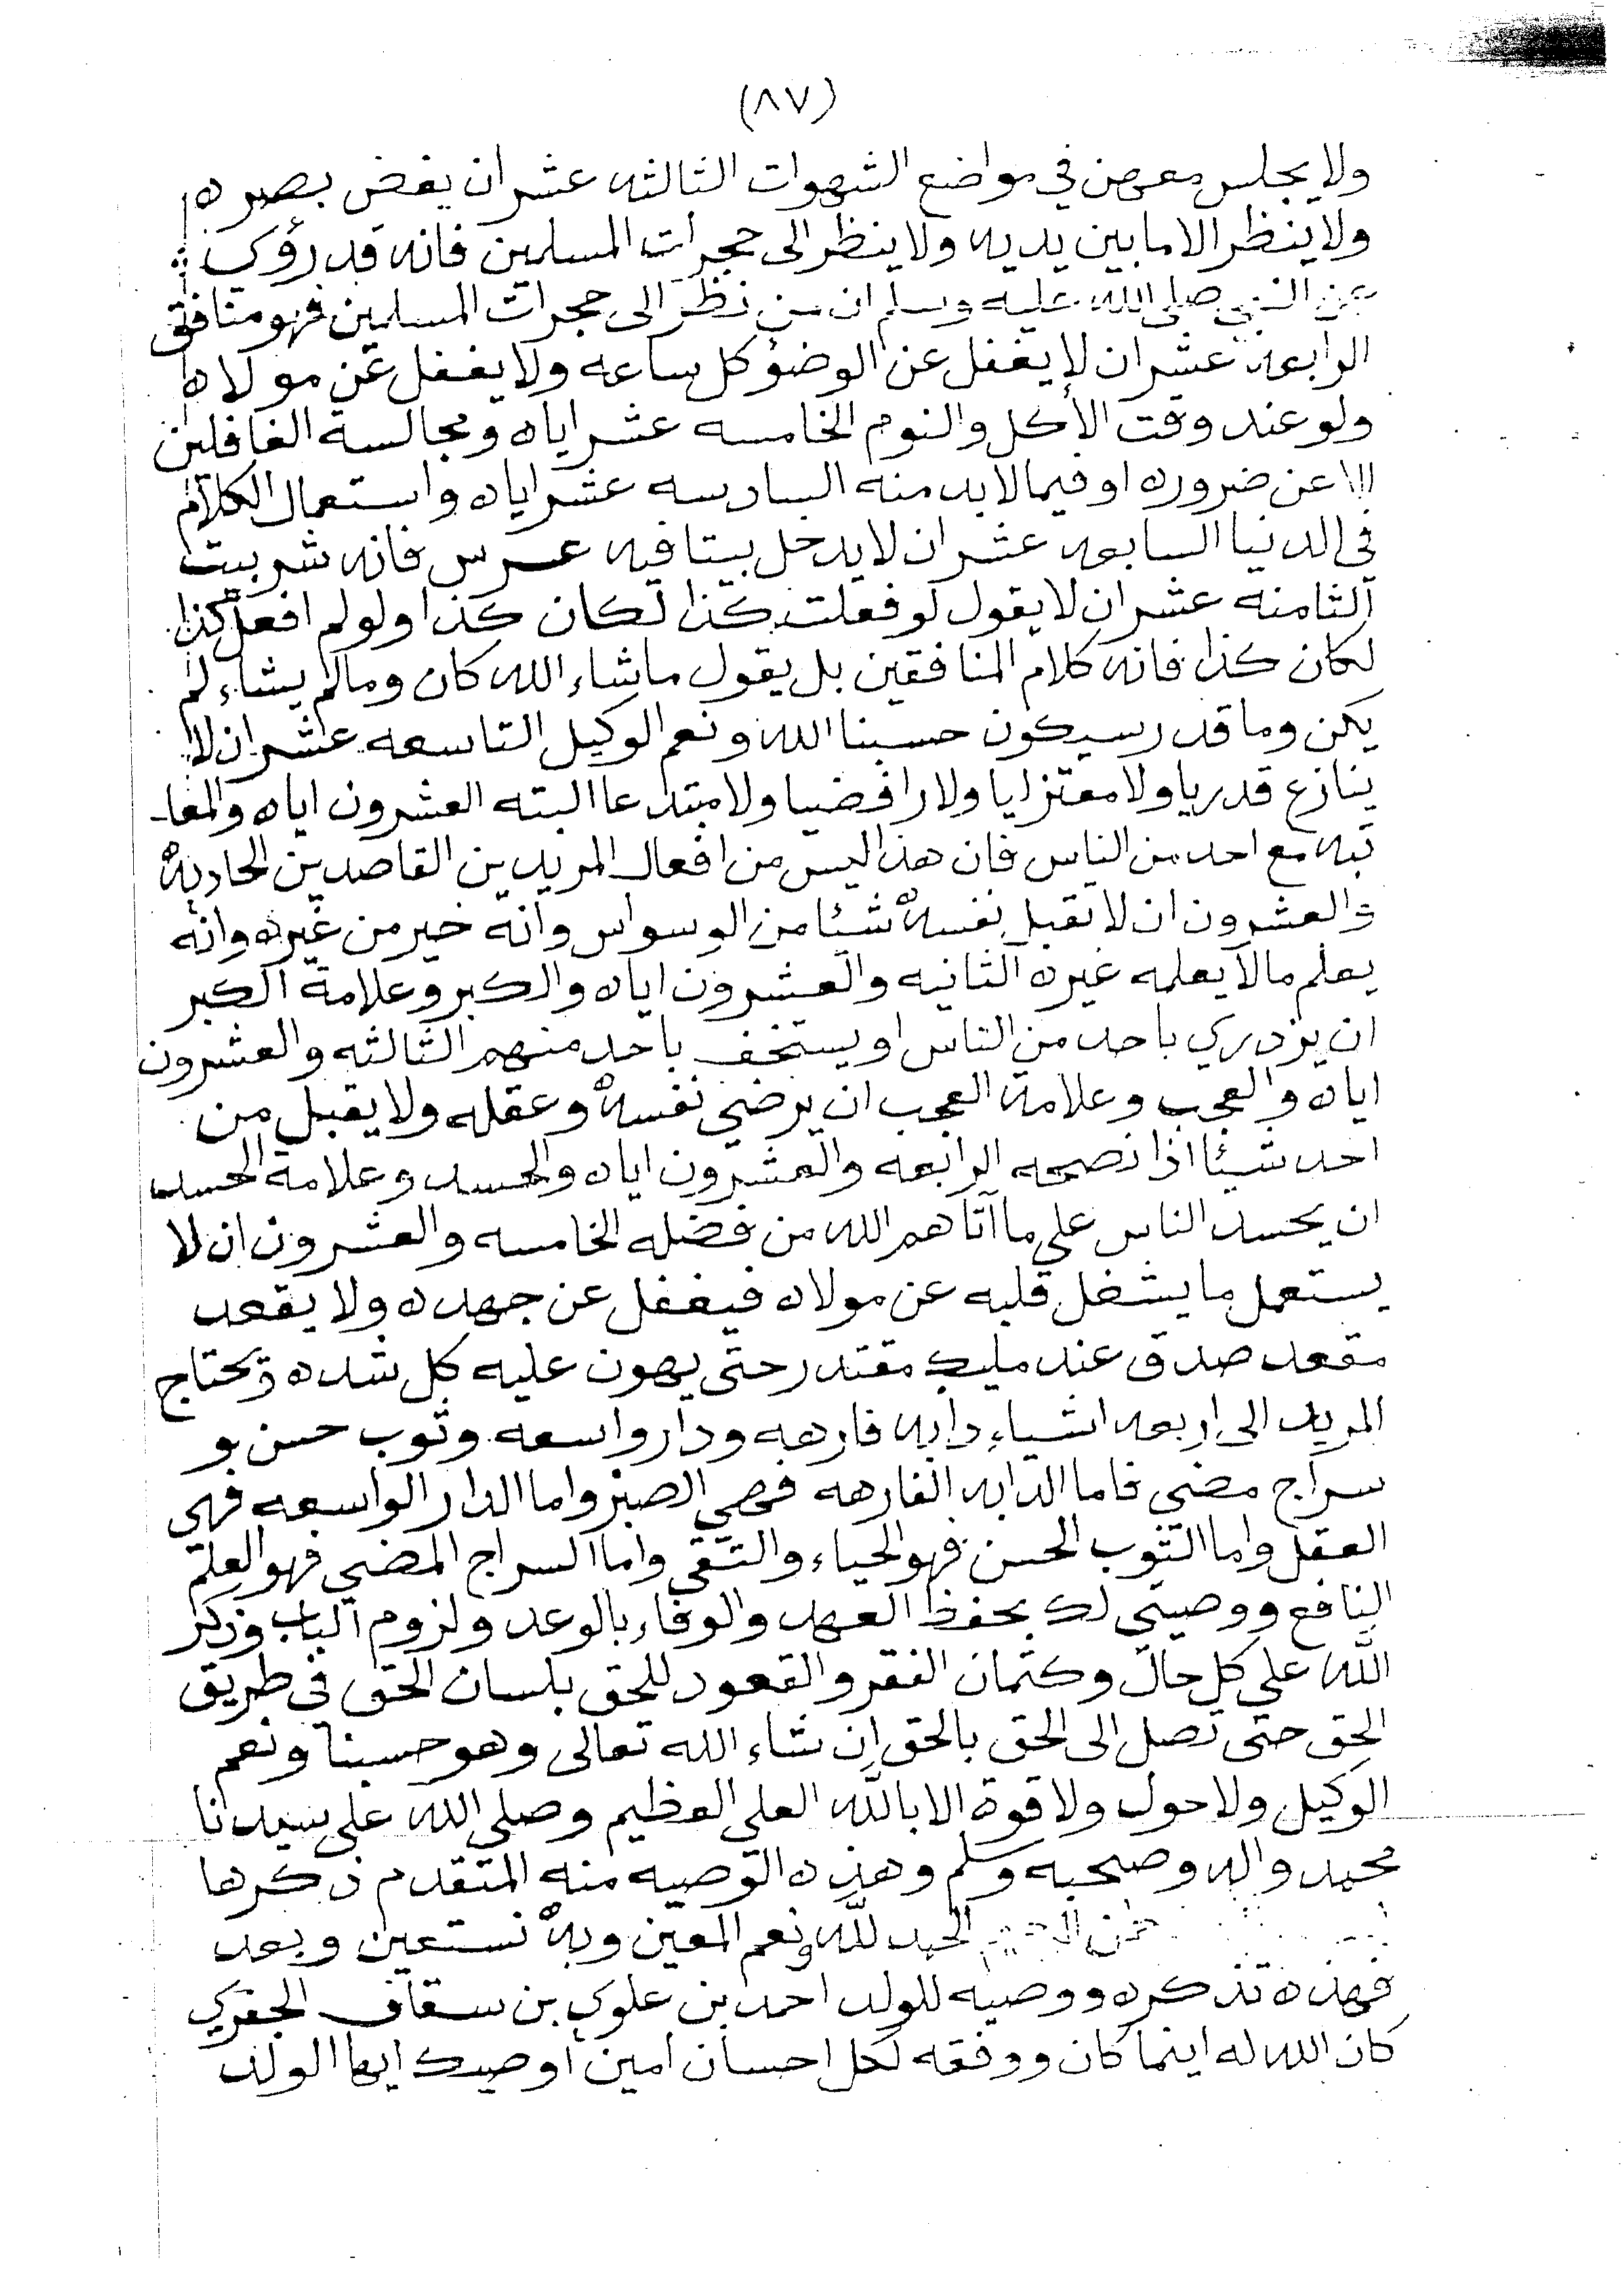 (٨٧)
ولا يجلس معهن في مواضع الشهوات الثالثه عشر ان يغض بصره
ولا ينظر الا ما بين يديه ولا ينظر الى حجرات المسلمين فانه قد روي
عن النبي صلى الله عليه وسلم ان من نظر الى حجرات المسلمين فهو منافق
الرابعه عشر ان لا يغفل عن الوضؤ كل ساعه ولا يغفل عن مولاه
ولو عند وقت الأكل والنوم الخامسه عشر اياه ومجالسة الغافلين
الا عن ضروره او فيما لابد منه السادسه عشر اياه واستعمال الكلام
في الدنيا السابعه عشر ان لا يدخل بيتا فيه عرس فانه شر بيت
الثامنه عشر ان لا يقول لو فعلت كذا لكان كذا ولو لم افعل كذا
لكان كذا فانه كلام المنافقين بل يقول ما شاء الله كان وما لم يشاء لم
يكن وما قدر سيكون حسبنا الله ونعم الوكيل التاسعه عشر ان لا
ينازع قدريا ولا معتزليا ولا رافضيا ولا مبتدعا البته العشرون اياه والمعا
تبه مع احد من الناس فان هذا ليس من افعال المريدين القاصدين الحاديه
والعشرون ان لا تقبل نفسه شئا من الوسواس وانه خير من غيره وانه
يعلم مالا يعلمه غيره الثانيه والعشرون اياه والكبر وعلامة الكبر
ان يزدري باحد من الناس او يستخف باحد منهم الثالثه والعشرون
اياه والعجب وعلامة العجب ان يرضى نفسه وعقله ولا يقبل من
احد شيئا اذا نصحه الرابعه والعشرون اياه والحسد وعلامة الحسد
ان يحسد الناس على ما آتاهم الله من فضله الخامسه والعشرون ان لا
يستعمل ما يشغل قلبه عن مولاه فيغفل عن جهده ولا يقعد
مقعد صدق عند مليك مقتدر حتى يهون عليه كل شده وتحتاج
المريد الى اربعه اشياء دابه فارهه ودار واسعه وثوب حسن و
سراج مضي فاما الدابه الفارهه فهي الصبر واما الدار الواسعه فهي
العقل واما الثوب الحسن فهو الحياء والتقى واما السراج المضي فهو العلم
النافع ووصيتى لك بحفظ العهد والوفاء بالوعد ولزوم الباب وذكر
الله على كل حال وكتمان الفقر والقعود للحق بلسان الحق في طريق
الحق حتى تصل الى الحق بالحق إن شاء الله تعالى وهو حسبنا ونعم
الوكيل ولا حول ولا قوة الا بالله العلي العظيم وصلى الله على سيدنا
محمد واله وصحبه وسلم وهذه التوصيه منه المتقدم ذكرها
الحمد لله ونعم المعين وبه نستعين وبعد
فهذه تذكره ووصيه للولد احمد بن علوي بن سقاف الجفري
كان الله له اينما كان ووفقه لكل احسان امين أوصيك ايها الولد